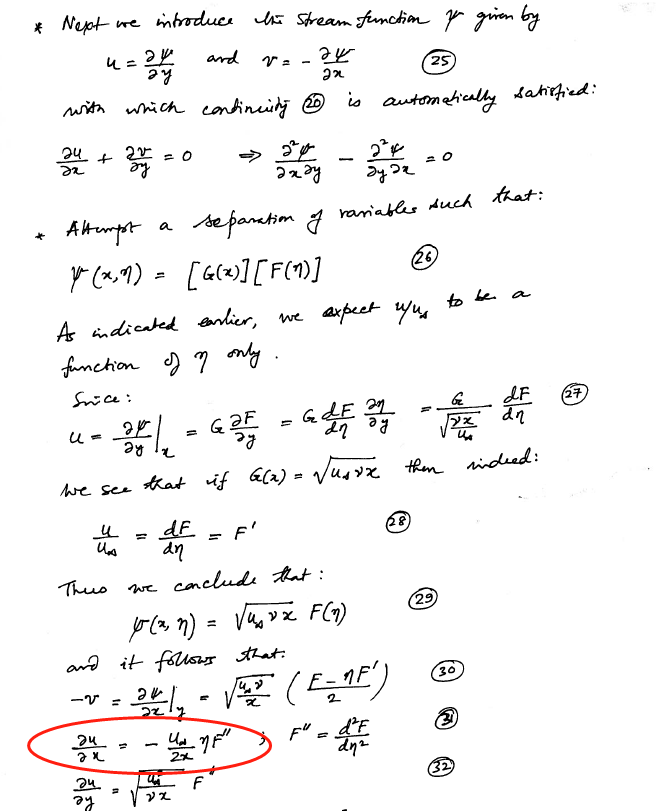 * Next we introduce the stream function ψ given by
u = ∂ψ/∂y and v = - ∂ψ/∂x (25)
with which continuity (20) is automatically satisfied:
∂u/∂x + ∂v/∂y = 0 ⇒ ∂²ψ/∂x∂y - ∂²ψ/∂y∂x = 0
* Attempt a separation of variables such that:
ψ(x,η) = [G(x)][F(η)] (26)
As indicated earlier, we expect u/u∞ to be a
function of η only.
Since:
u = ∂ψ/∂y|x = G ∂F/∂y = G dF/dη ∂η/∂y = G/√(νx/u∞) dF/dη (27)
We see that if G(x) = √(u∞νx) then indeed:
u/u∞ = dF/dη = F' (28)
Thus we conclude that:
ψ(x,η) = √(u∞νx) F(η) (29)
and it follows that:
-v = ∂ψ/∂x|y = √(u∞ν/x) (F-ηF'/2) (30)
∂u/∂x = - u∞/2x ηF'' ; F'' = d²F/dη² (31)
∂u/∂y = √(u∞³/νx) F'' (32)